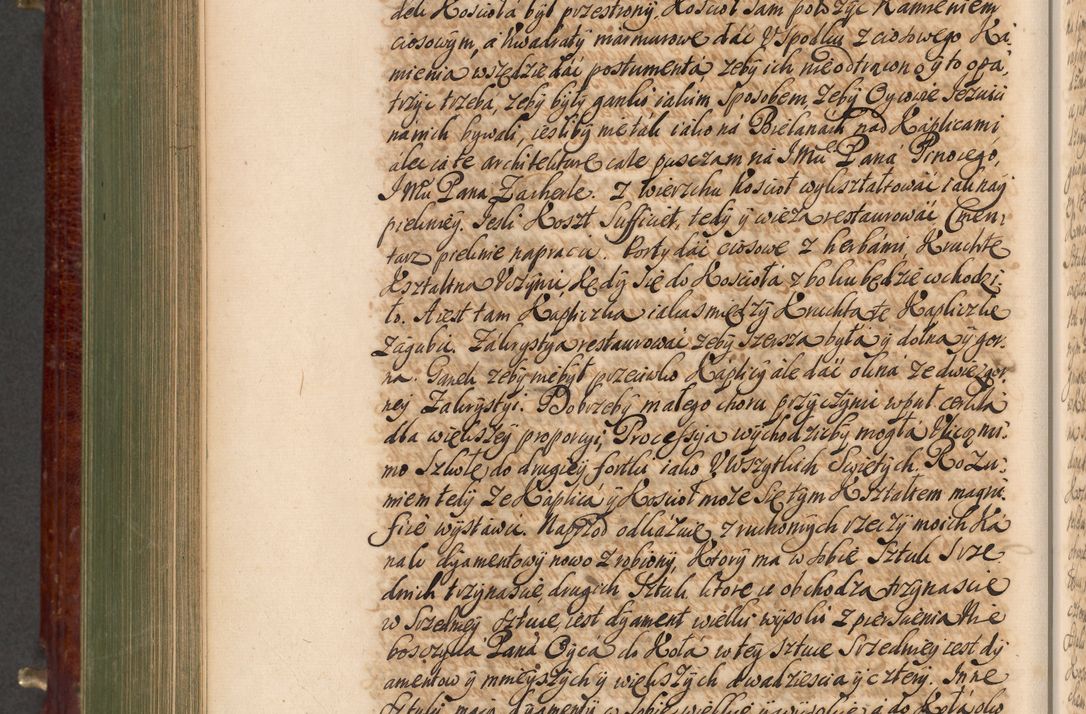 deli Kosciola był przestrony. Kosciol sam położyc Kamieniem
ciosowym, a kwadraty marmurowe dac V Spodku z ciosowego Ka,
mienia wszędzie dac postumenta zeby ich nieodtrącono y to opa,
trzyc trzeba, zeby były ganki iakim Sposobem, zeby Oycowie Jezuici
na nich bywali, iesliby nie tak iako ná Bielanach nad Kaplicami
ale ia te architekture cale pusczam ná JMci Paná
JMci Pana Zacherle. Z wierzchu Kosciol wykształtowac iak nay
piekniey. Jesli Koszt Sufficiet, tedy y wieza restaurowac Cmen,
tarz pieknie napravic. forty dac ciosowe z herbámi, Kruchte
Kształtna Vczynic, kędy się do Kosciolá z boku będzie wchodzi,
lo. A iest tam Kapliczka iakas między Kruchta te Kapliczke
Zágubic. Zakrystya restaurowac zeby szersza była y dolna y gor,
na. Ganek zeby niebył przeciwko Kaplicy ale dác okná ze dwie z gor,
ney Zakrystyi. Dobrzeby małego choru przyczynic wpuł cerkla
dla większey proporcyi, Processya wychodzicby mogła Vlicą mi,
mo Szkołę do drugiey fortki iako V Wszytkich Swiętych. Rozu,
miem tedy ze Kaplicá y Kosciol moze się tym Kształtem magni,
fice wystawic. Naprzod odkazuię z ruchomych rzeczy moich Ká,
nak dyamentowy nowo zrobiony, Ktory ma w sobie Sztuk Srze,
dnich trzynascie, drugich Sztuk ktore ie obchodza trzynascie
w Srzedniey sztuce iest dyament wielki wysoki z piersciénia Nie
boszczyka Páná Oycá do Kołá w tey sztuce Srzedniey iest dy,
amentow y mnieyszych y większych dwadziescia y cztery. Inne
Sztuki maia dyamenty w sobie wielkie y wysokie, a do Kołá oko